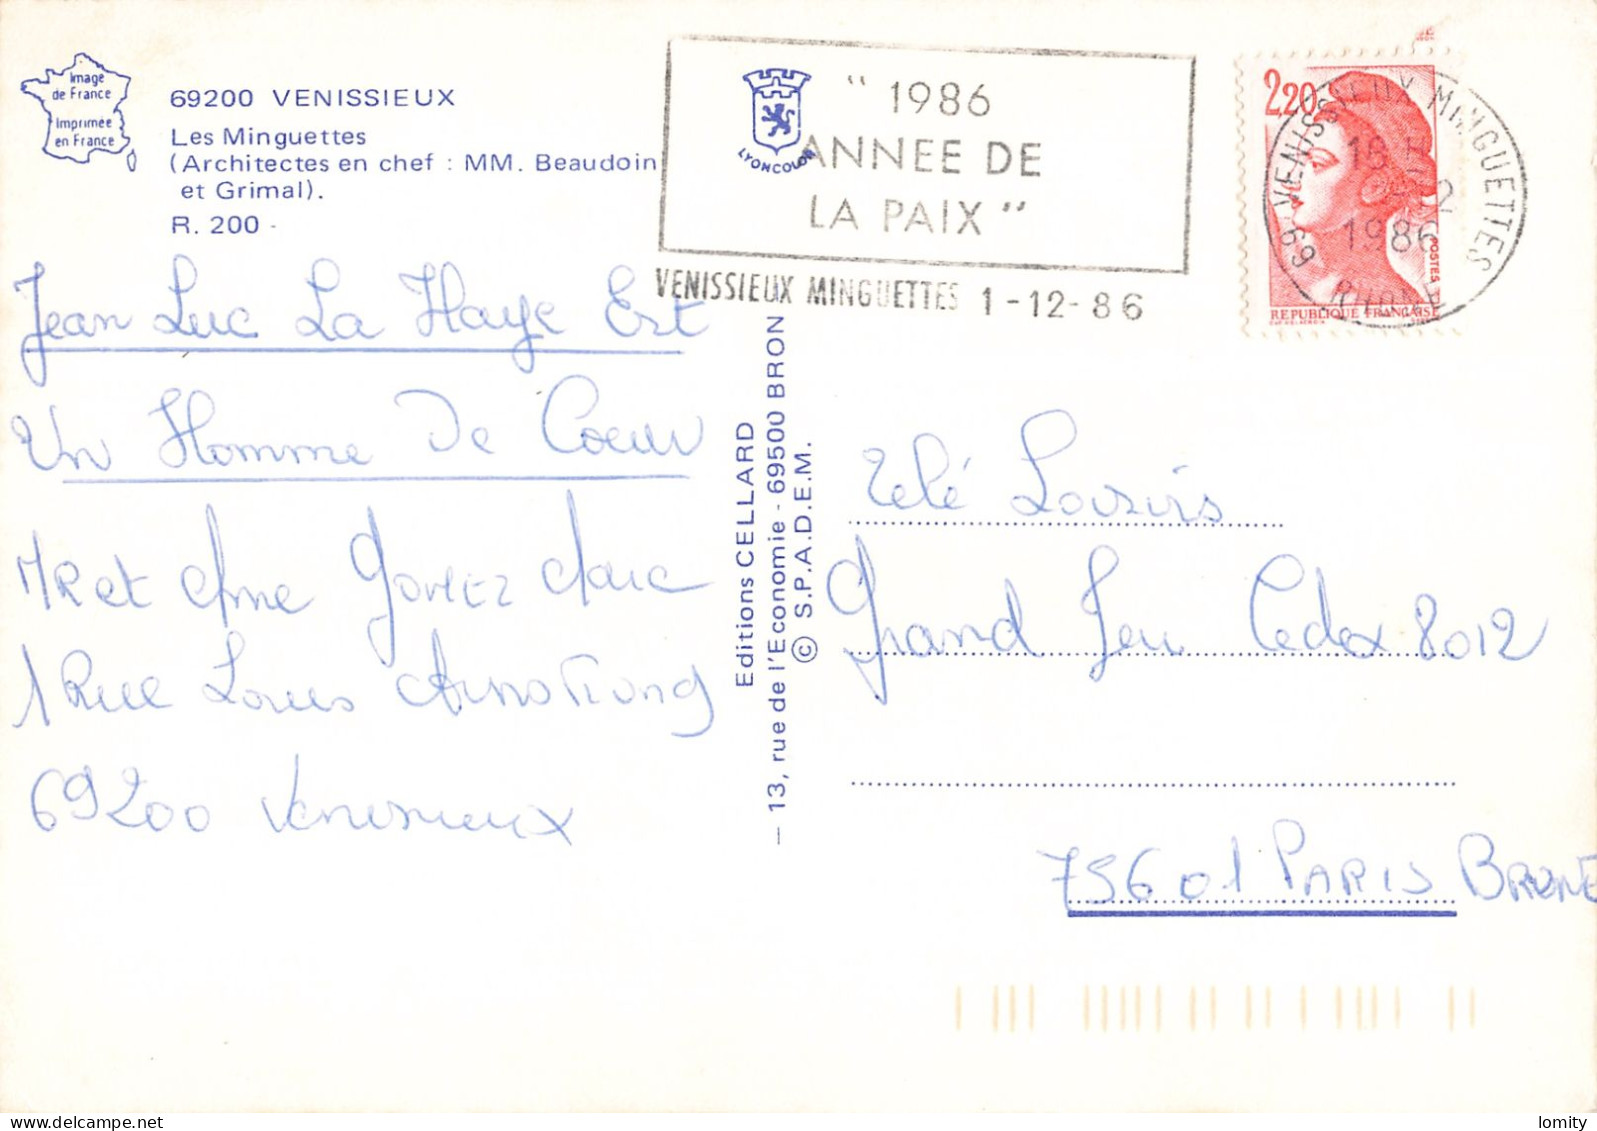 Image
de France
Imprimée
en France
69200 VENISSIEUX
Les Minguettes
(Architectes en chef : MM. Beaudoin
et Grimal).
R. 200 -
LYONCOLOR
" 1986
ANNEE DE
LA PAIX "
VENISSIEUX MINGUETTES 1-12-86
2,20
POSTES
REPUBLIQUE FRANÇAISE
69 VENISSIEUX MINGUETTES
16 H
1986
RHONE
Jean Luc La Haye Est
Un Homme De Coeur
MR et Mme Gomez Marc
1 Rue Louis Armstrong
69200 Venissieux
Editions CELLARD
— 13, rue de l'Economie - 69500 BRON
© S.P.A.D.E.M.
Télé Loisirs
Grand Jeu Cedex 8012
75601 PARIS BRUNE
lomity